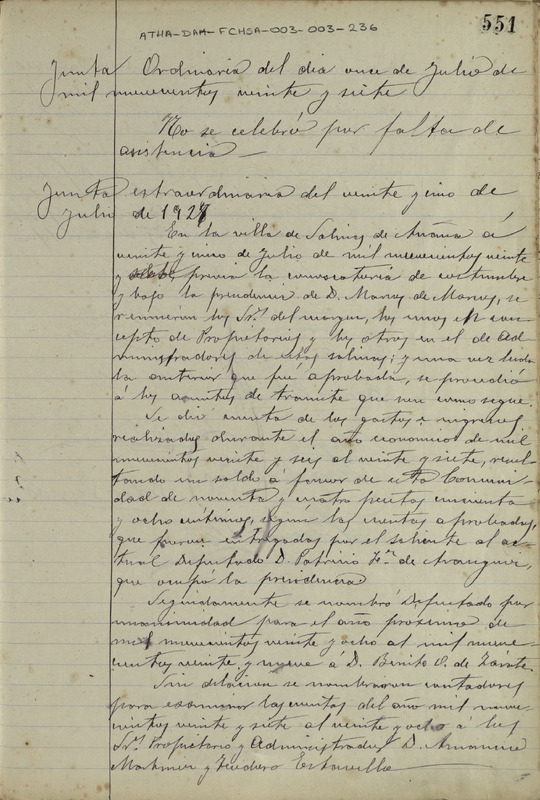 551
ATHA-DAH-FCHSA-003-003-236
Junta Ordinaria del dia once de Julio de
mil novecientos veinte y siete
No se celebró por falta de
asistencia —
Junta extraordinaria del veinte y cinco de
Julio de 1927
En la villa de Salinas de Añana á
veinte y cinco de Julio de mil novecientos veinte
y siete, previa la convocatoria de costumbre
y bajo la presidencia de D. Marcos de Marcos, se
reunieron los Srs. del margen, los unos en con-
cepto de Propietarios y los otros en el de ad
ministradores de estas salinas; y una vez leida
la anterior que fué aprobada, se procedió
á los asuntos de tramite que son como sigue.
Se dió cuenta de los gastos é ingresos
realizados durante el año economico de mil
novecientos veinte y seis al veinte y siete, resul-
tando un saldo á favor de esta Comuni-
dad de noventa y cuatro pesetas cincuenta
y ocho céntimos, según las cuentas aprobadas,
que fueron entregadas por el saliente al ac-
tual Deputado D. Patricio Fz. de Aranguiz,
que ocupó la presidencia
Seguidamente se nombró Deputado por
unanimidad para el año próximo de
mil novecientos veinte y ocho al mil nove-
cientos veinte y nueve á D. Benito O. de Zárate.
Sin dilacion se nombraron contadores
para examinar las cuentas del año mil nove-
cientos veinte y siete al veinte y ocho á los
Srs. Propietario y Administrador D. Amancio
y Teodoro Estavillo